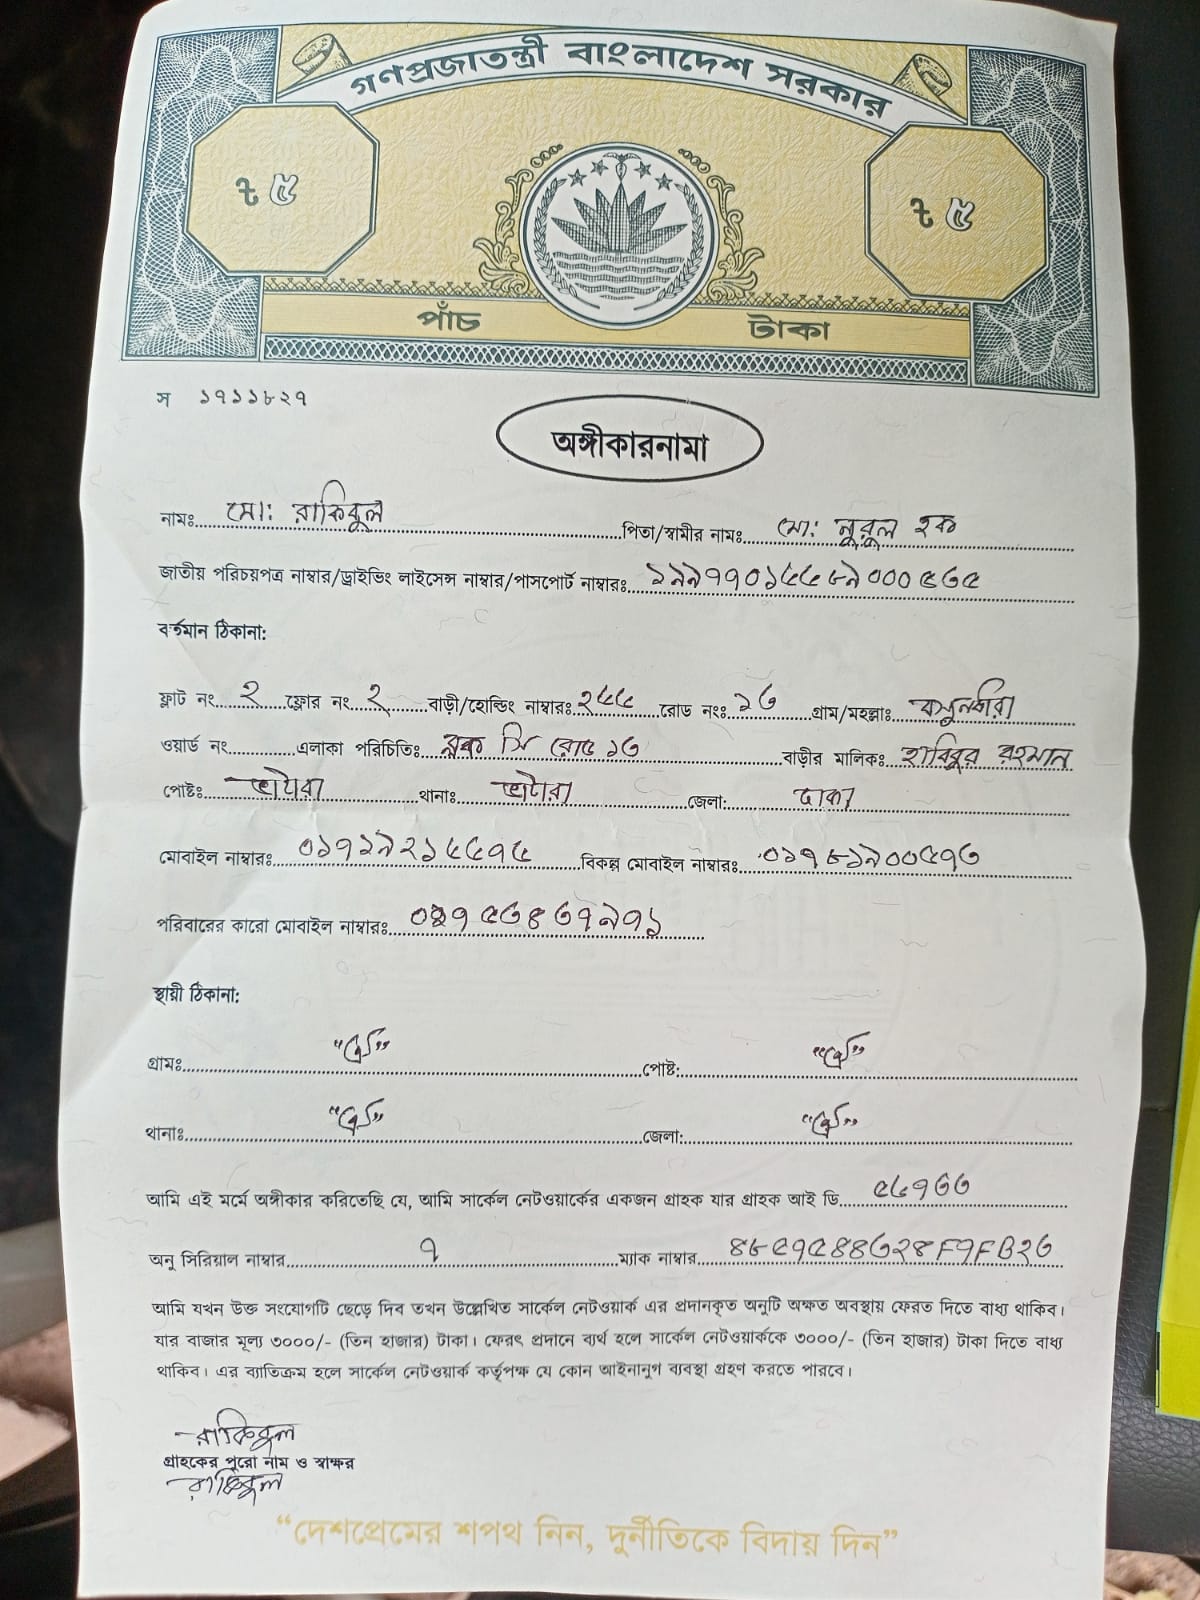 গণপ্রজাতন্ত্রী বাংলাদেশ সরকার
৳ ৫
৳ ৫
পাঁচ টাকা
স ১৭১১৮২৭
অঙ্গীকারনামা
নামঃ মো: রাকিবুল পিতা/স্বামীর নামঃ মো: নুরুল হক
জাতীয় পরিচয়পত্র নাম্বার/ড্রাইভিং লাইসেন্স নাম্বার/পাসপোর্ট নাম্বারঃ
বর্তমান ঠিকানা:
ফ্লাট নং ২ ফ্লোর নং ২ বাড়ী/হোল্ডিং নাম্বারঃ ২৫৫ রোড নংঃ ১৩ গ্রাম/মহল্লাঃ
ওয়ার্ড নং এলাকা পরিচিতিঃ ব্লক সি রোড ১৩ বাড়ীর মালিকঃ হাবিবুর রহমান
পোষ্টঃ ভাটারা থানাঃ ভাটারা জেলা: ঢাকা
মোবাইল নাম্বারঃ বিকল্প মোবাইল নাম্বারঃ
পরিবারের কারো মোবাইল নাম্বারঃ
স্থায়ী ঠিকানা:
গ্রামঃ "ঐ" পোষ্ট: "ঐ"
থানাঃ "ঐ" জেলা: "ঐ"
আমি এই মর্মে অঙ্গীকার করিতেছি যে, আমি সার্কেল নেটওয়ার্কের একজন গ্রাহক যার গ্রাহক আই ডি
অনু সিরিয়াল নাম্বার ৭ ম্যাক নাম্বার
আমি যখন উক্ত সংযোগটি ছেড়ে দিব তখন উল্লেখিত সার্কেল নেটওয়ার্ক এর প্রদানকৃত অনুটি অক্ষত অবস্থায় ফেরত দিতে বাধ্য থাকিব।
যার বাজার মূল্য ৩০০০/- (তিন হাজার) টাকা। ফেরৎ প্রদানে ব্যর্থ হলে সার্কেল নেটওয়ার্ককে ৩০০০/- (তিন হাজার) টাকা দিতে বাধ্য
থাকিব। এর ব্যাতিক্রম হলে সার্কেল নেটওয়ার্ক কর্তৃপক্ষ যে কোন আইনানুগ ব্যবস্থা গ্রহণ করতে পারবে।
রাকিবুল
গ্রাহকের পুরো নাম ও স্বাক্ষর
রাকিবুল
"দেশপ্রেমের শপথ নিন, দুর্নীতিকে বিদায় দিন"